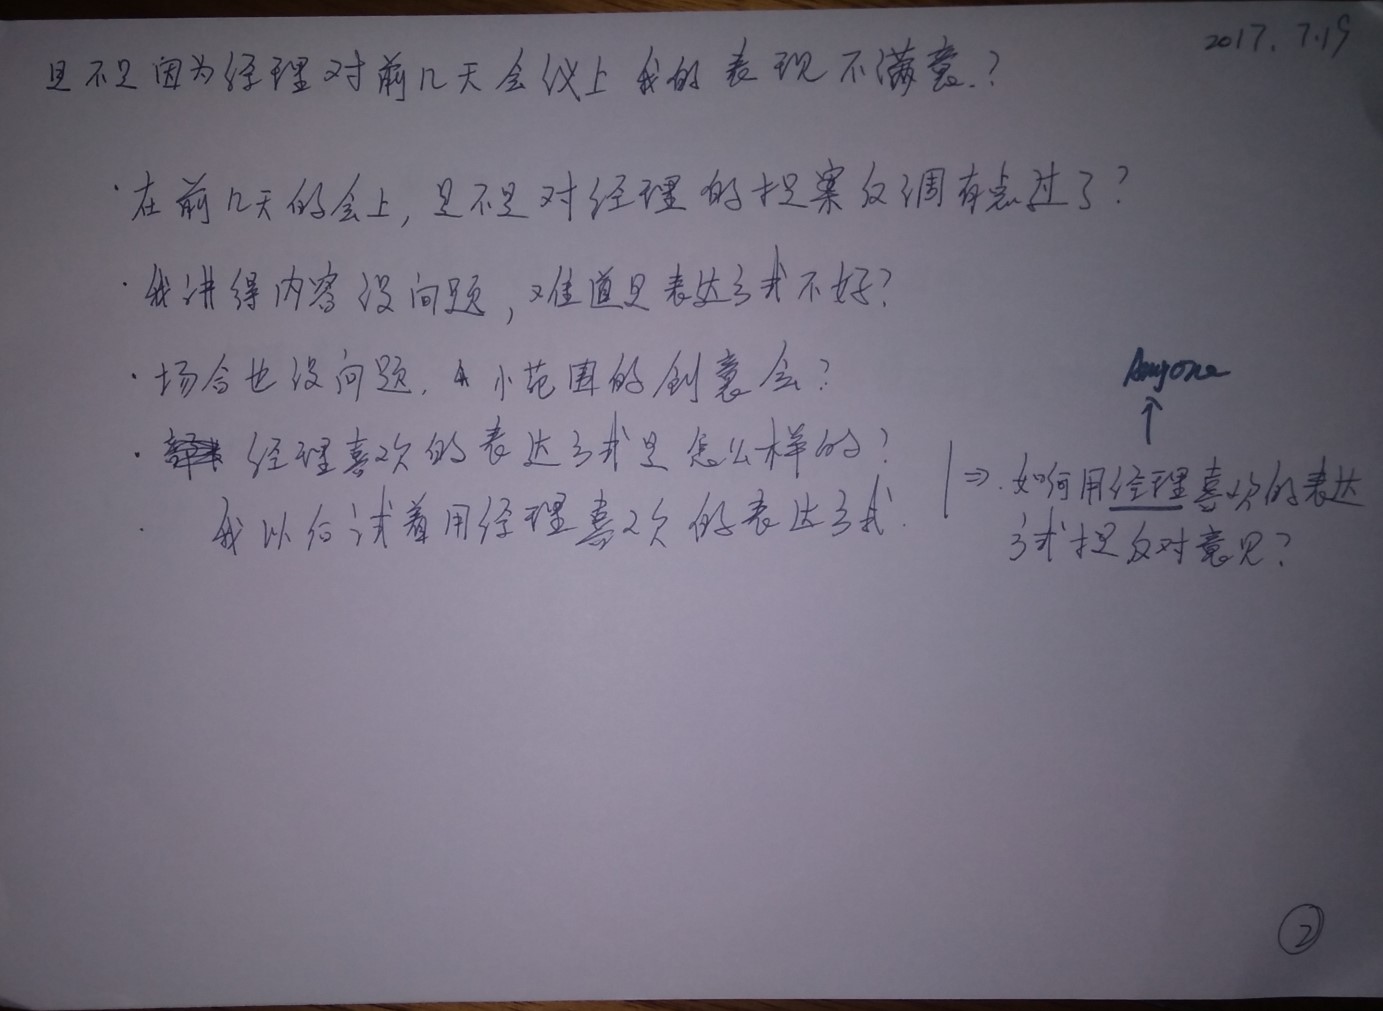 2017.7.19
是不是因为经理对前几天会议上我的表现不满意.?
·在前几天的会上,是不是对经理的提案反调有点过了?
·我讲得内容没问题,难道是表达方式不好?
·场合也没问题.小范围的创意会?
Anyone
↑
·经理喜欢的表达方式是怎么样的?
⇒.如何用经理喜欢的表达
·我以后试着用经理喜欢的表达方式.
方式提反对意见?
2